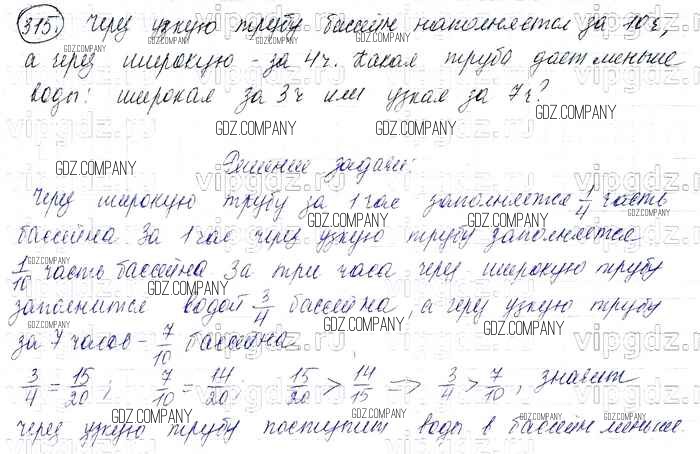 315. Через узкую трубу бассейн наполняется за 10 ч,
а через широкую - за 4 ч. Какая труба дает меньше
воды: широкая за 3 ч или узкая за 7 ч?
Решение задачи:
Через широкую трубу за 1 час заполняется 1/4 часть
бассейна. За 1 час через узкую трубу заполняется
1/10 часть бассейна. За три часа через широкую трубу
заполнится водой 3/4 бассейна, а через узкую трубу
за 7 часов - 7/10 бассейна.
3/4 = 15/20; 7/10 = 14/20; 15/20 > 14/15 => 3/4 > 7/10, значит
через узкую трубу поступит воды в бассейн меньше.
GDZ.COMPANY
vipgdz.ru